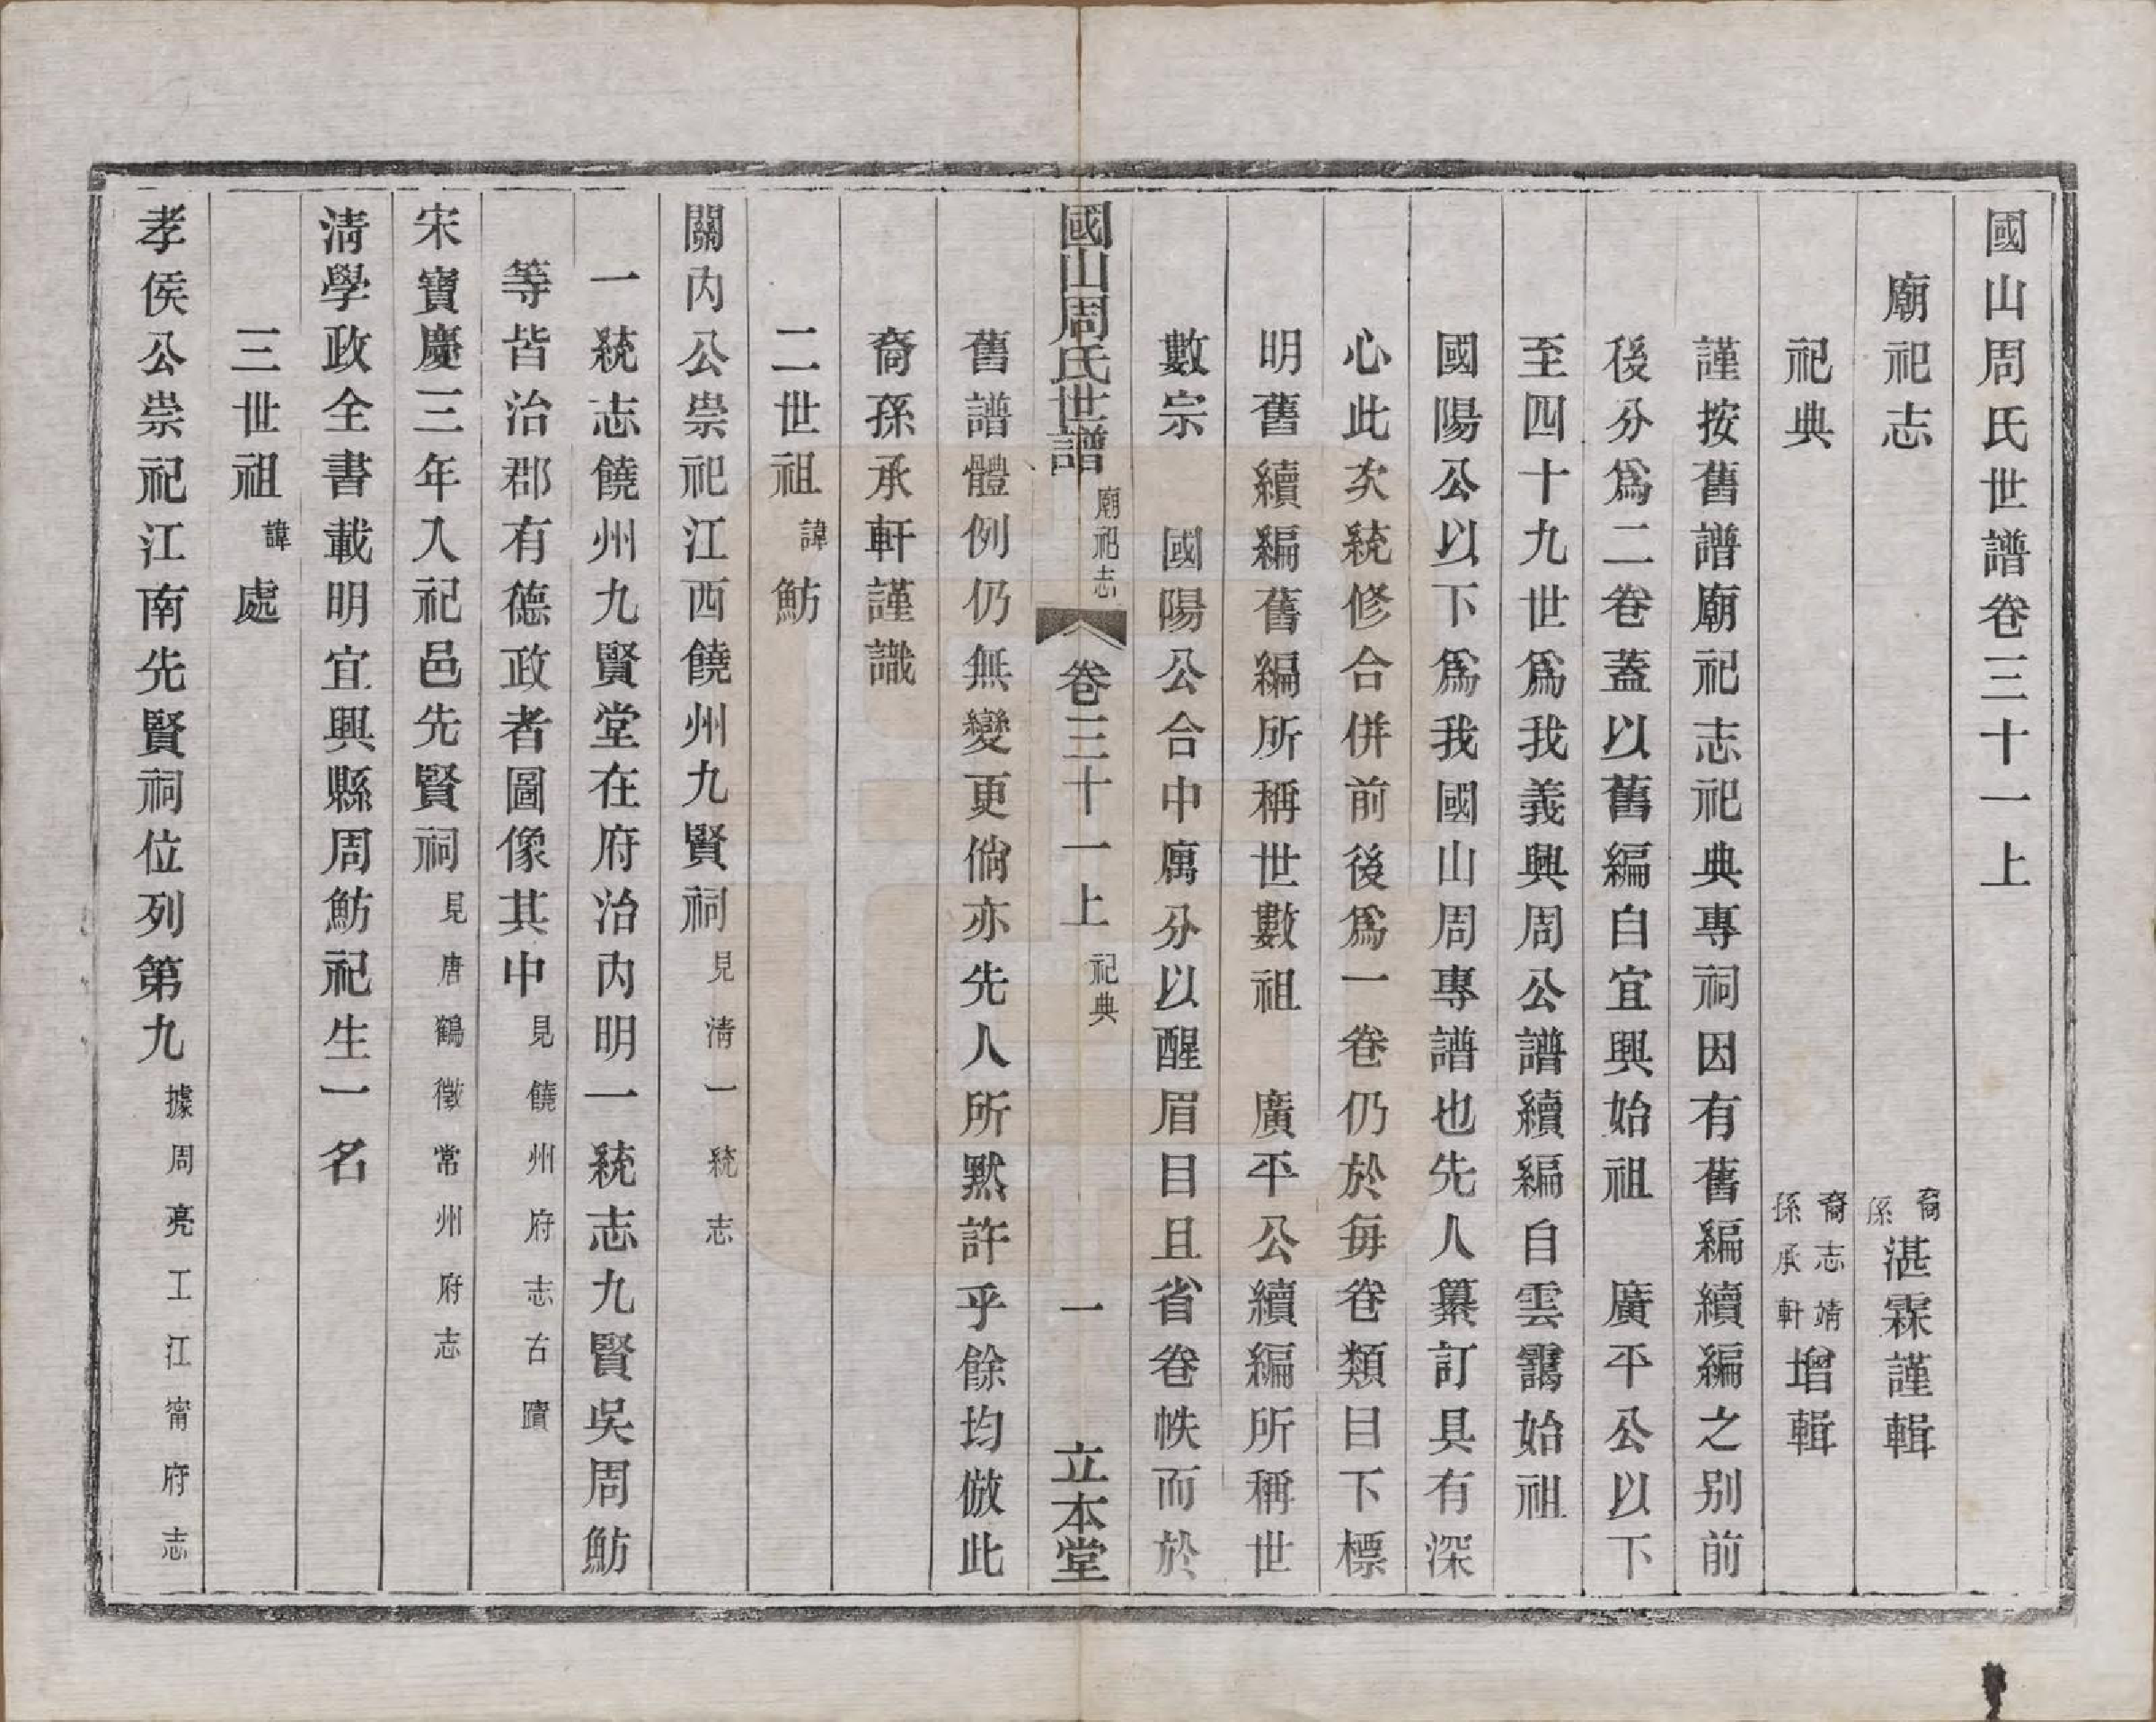 國山周氏世譜卷三十一上
廟祀志　裔孫湛霖謹輯
祀典　裔孫志靖承軒增輯
謹按舊譜廟祀志祀典專祠因有舊編續編之别前
後分爲二卷蓋以舊編自宜興始祖　廣平公以下
至四十九世爲我義興周公譜續編自雲靄始祖
國陽公以下爲我國山周專譜也先人纂訂具有深
心此次統修合併前後爲一卷仍於每卷類目下標
明舊續編舊編所稱世數祖　廣平公續編所稱世
數宗　國陽公合中厲分以醒眉目且省卷帙而於
國山周氏世譜　廟祀志　卷三十一上　祀典　一　立本堂
舊譜體例仍無變更倘亦先人所默許乎餘均倣此
裔孫承軒謹識
二世祖諱魴
關内公崇祀江西饒州九賢祠見清一統志
一統志饒州九賢堂在府治内明一統志九賢吳周魴
等皆治郡有德政者圖像其中見饒州府志古蹟
宋寶慶三年入祀邑先賢祠見唐鶴徵常州府志
清學政全書載明宜興縣周魴祀生一名
三世祖諱處
孝侯公崇祀江南先賢祠位列第九據周亮工江甯府志